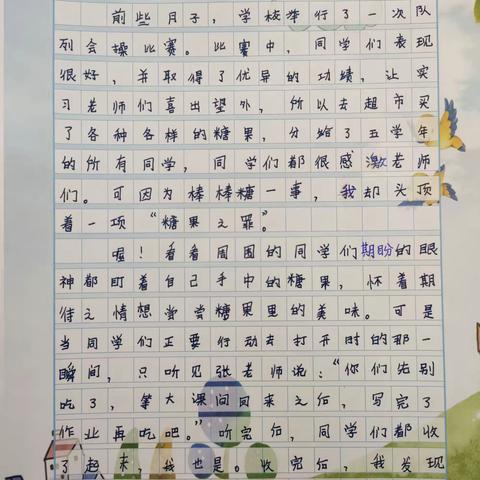 前些日子，学校举行了一次队
列会操比赛。此赛中，同学们表现
很好，并取得了优异的功绩，让实
习老师们喜出望外，所以去超市买
了各种各样的糖果，分给了五学年
的所有同学，同学们都很感激老师
们。可因为棒棒糖一事，我却头顶
着一项“糖果之罪”。
喔！看看周围的同学们期盼的眼
神都盯着自己手中的糖果，怀着期
待之情想尝尝糖果里的美味。可是
当同学们正要行动去打开时的那一
瞬间，只听见张老师说：“你们先别
吃了，等大课间回来之后，写完了
作业再吃吧。”听完后，同学们都收
了起来，我也是。收完后，我发现